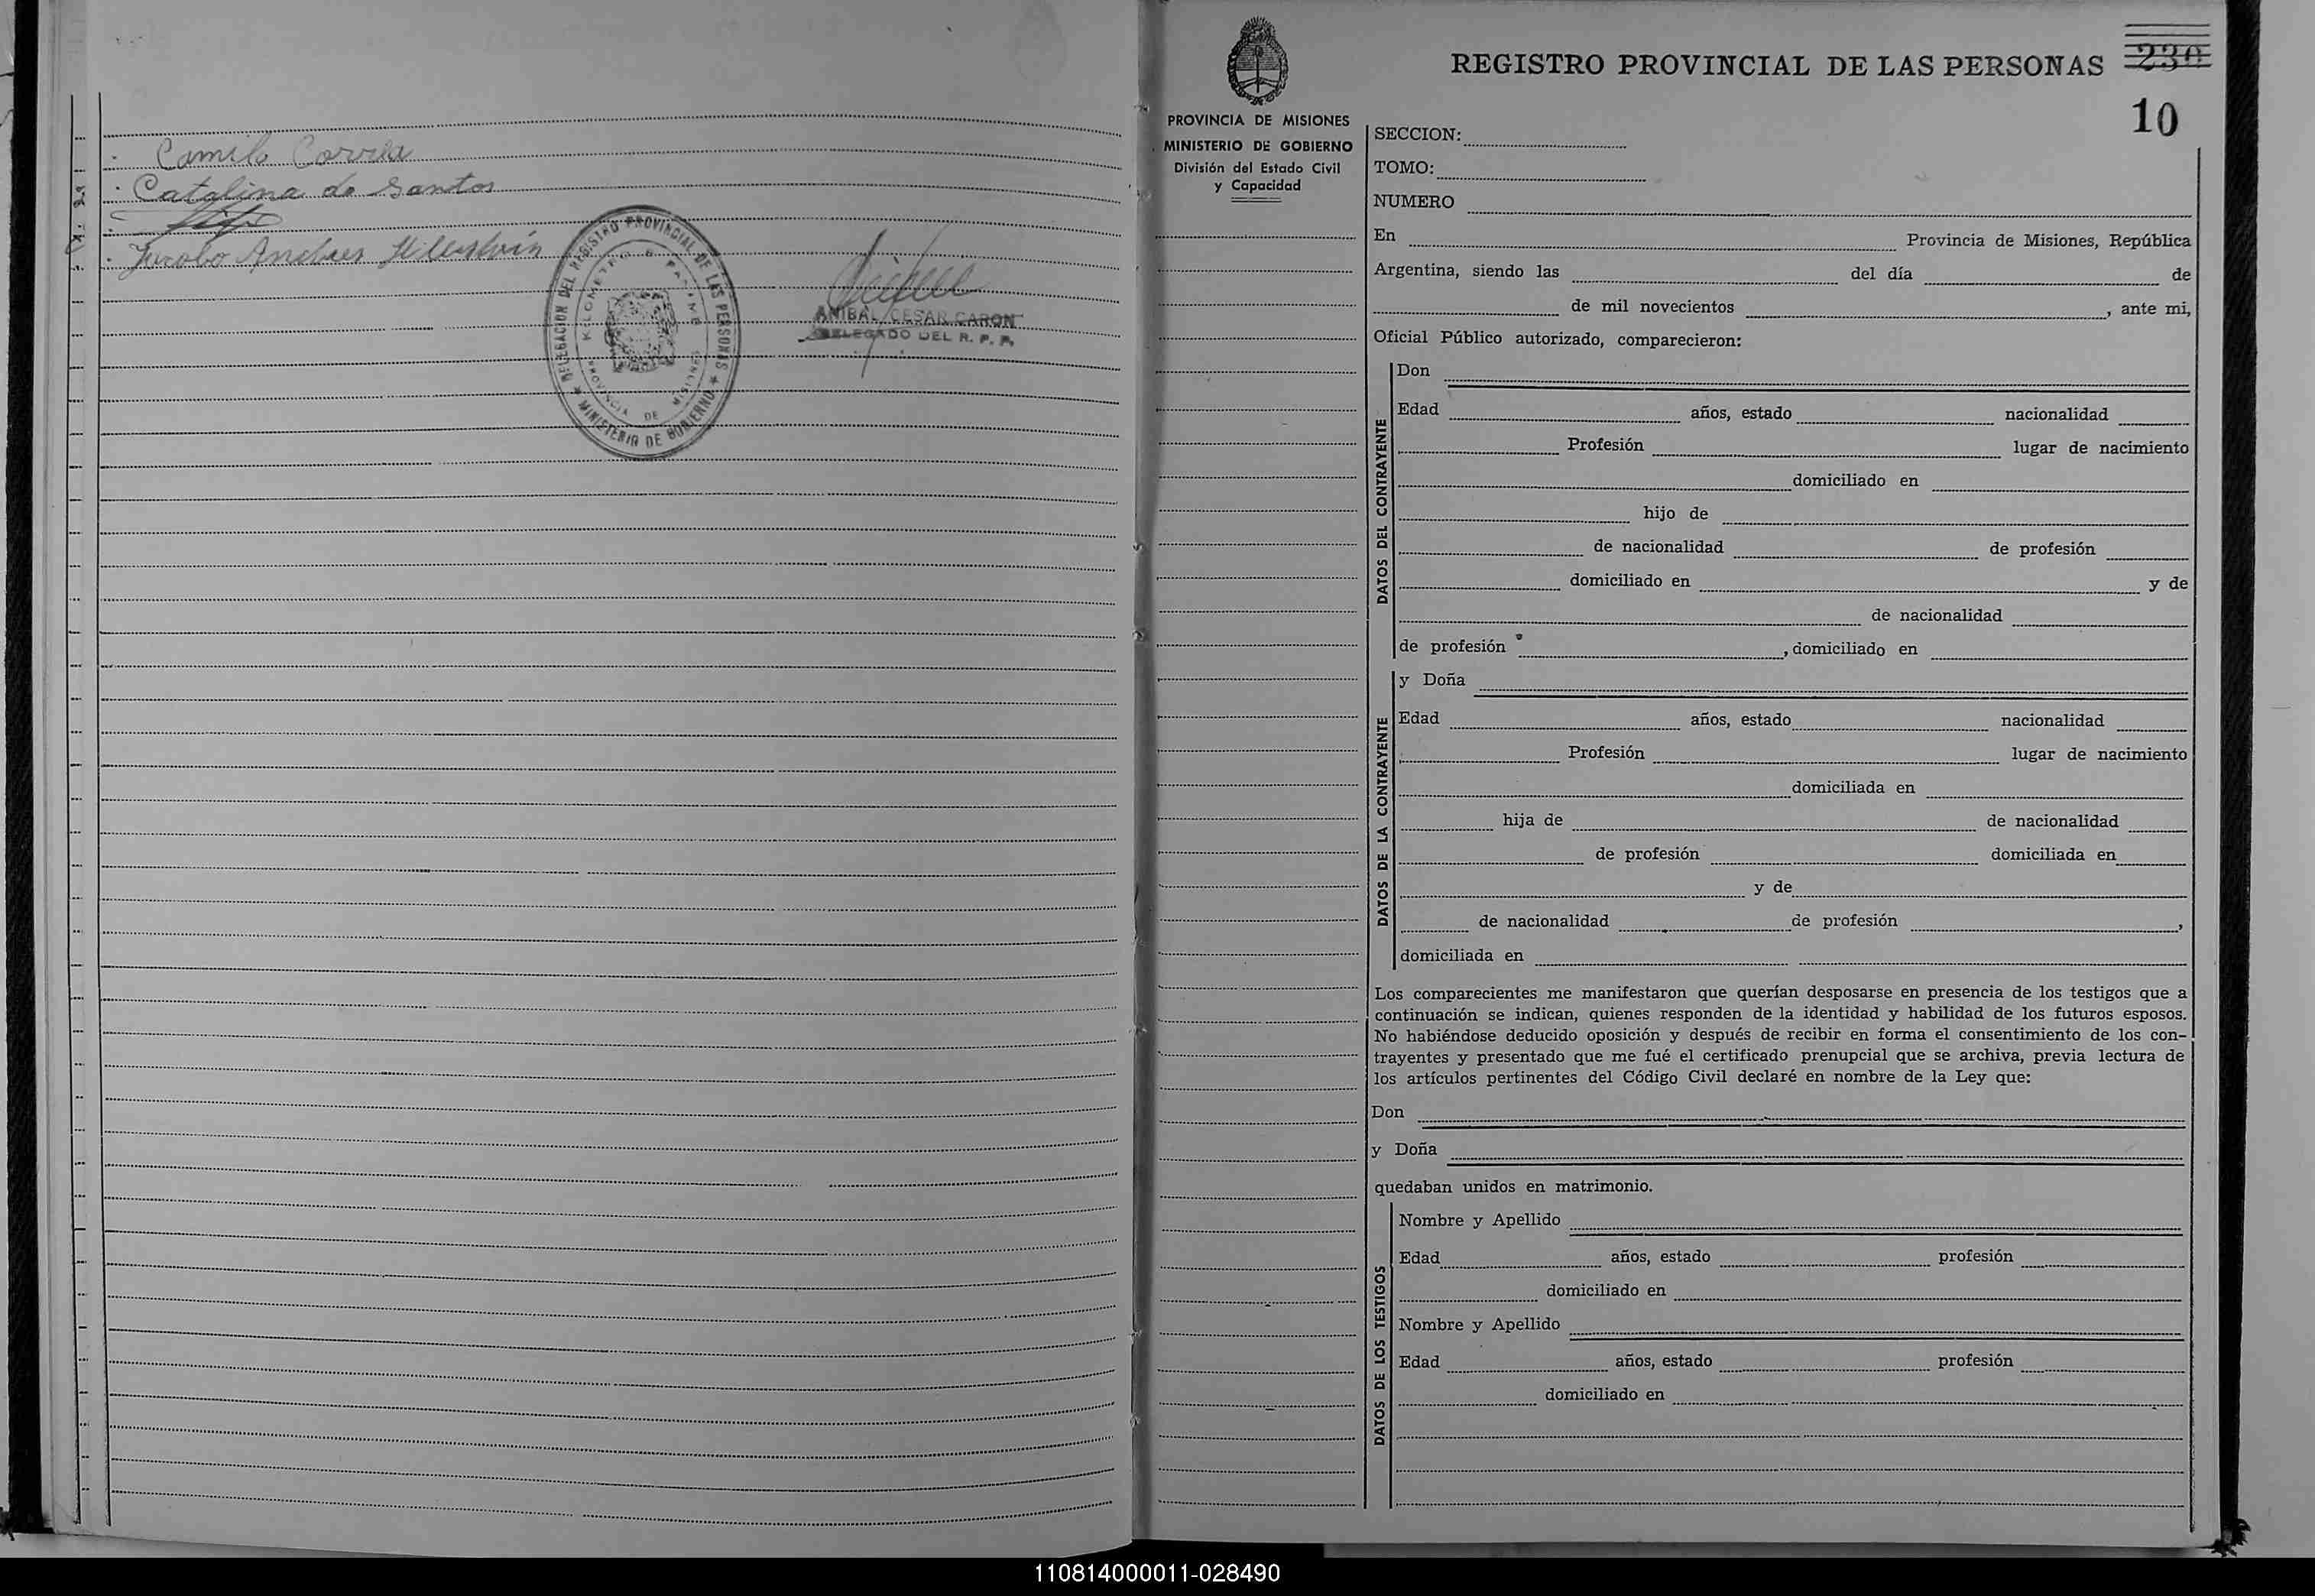 Camilo Correa
Catalina do Santos
Jacobo Andres
DELEGACION DEL REGISTRO PROVINCIAL DE LAS PERSONAS
★ MINISTERIO DE GOBIERNO ★
KILOMETRO
PROVINCIA DE MISIONES
ANIBAL CESAR CARON
DELEGADO DEL R. P. P.
PROVINCIA DE MISIONES
MINISTERIO DE GOBIERNO
División del Estado Civil
y Capacidad
REGISTRO PROVINCIAL DE LAS PERSONAS
230
10
SECCION:
TOMO:
NUMERO
En Provincia de Misiones, República
Argentina, siendo las del día de
de mil novecientos , ante mi,
Oficial Público autorizado, comparecieron:
DATOS DEL CONTRAYENTE
Don
Edad años, estado nacionalidad
Profesión lugar de nacimiento
domiciliado en
hijo de
de nacionalidad de profesión
domiciliado en y de
de nacionalidad
de profesión , domiciliado en
DATOS DE LA CONTRAYENTE
y Doña
Edad años, estado nacionalidad
Profesión lugar de nacimiento
domiciliada en
hija de de nacionalidad
de profesión domiciliada en
y de
de nacionalidad de profesión ,
domiciliada en
Los comparecientes me manifestaron que querían desposarse en presencia de los testigos que a
continuación se indican, quienes responden de la identidad y habilidad de los futuros esposos.
No habiéndose deducido oposición y después de recibir en forma el consentimiento de los con-
trayentes y presentado que me fué el certificado prenupcial que se archiva, previa lectura de
los artículos pertinentes del Código Civil declaré en nombre de la Ley que:
Don
y Doña
quedaban unidos en matrimonio.
DATOS DE LOS TESTIGOS
Nombre y Apellido
Edad años, estado profesión
domiciliado en
Nombre y Apellido
Edad años, estado profesión
domiciliado en
110814000011-028490